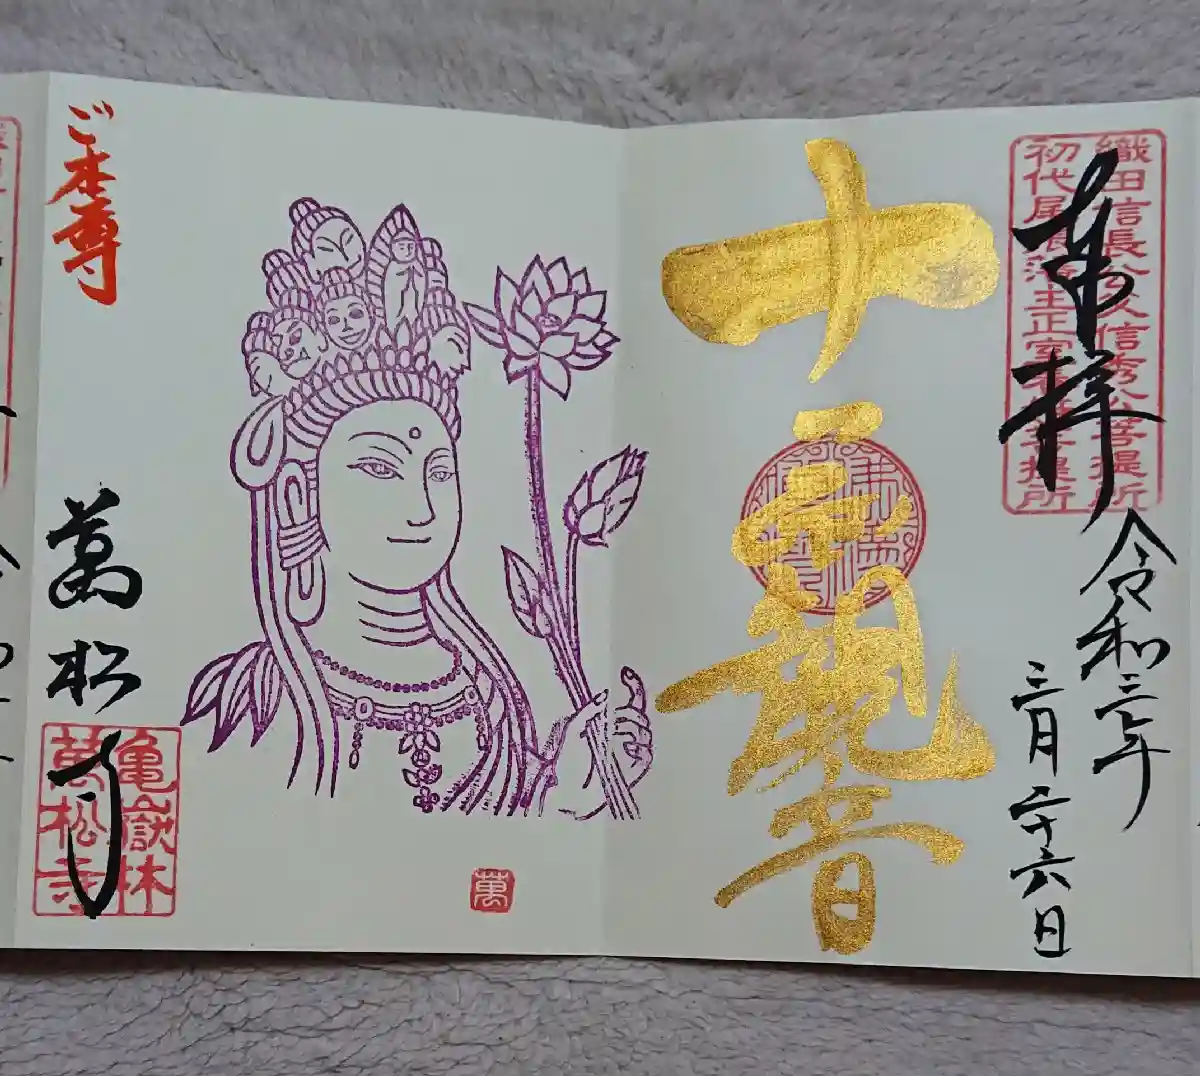 織田信長公父信秀公菩提所
初代尾張藩主正室春姫菩提所
奉拝
令和三年
三月二十六日
十一面観音
ご本尊
萬松寺
亀嶽林
萬松寺
萬